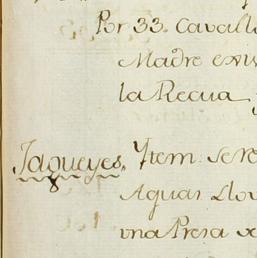 Por 33. Cavall
Madre exis
la Recua
Jagueyes. Ytem: Se re
Aguas Llov
una Presa de